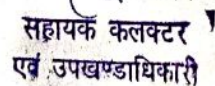 सहायक कलक्टर
एवं उपखण्डाधिकारी